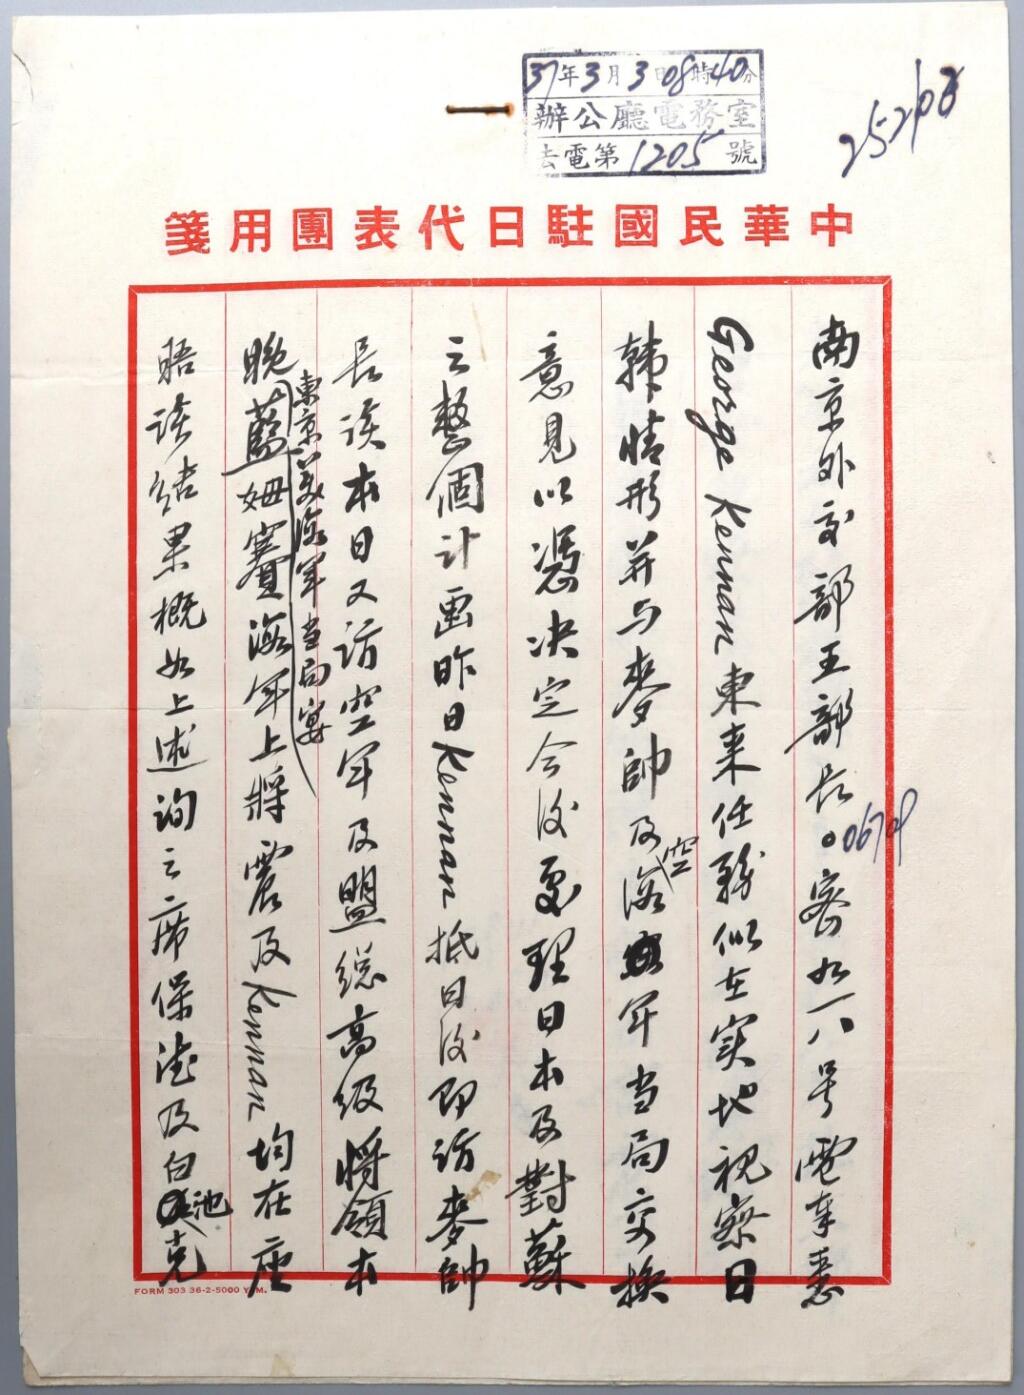 37年3月3日08時40分
辦公廳電務室
去電第1205號
252103
中華民國駐日代表團用箋
南京外交部王部長。密 九一八号電奉悉
0679
George Kennan 東来任務似在实地視察日
韩情形并与麥帥及海空军当局交换
意見以憑决定今後處理日本及對蘇
之整個计画昨日Kennan抵日後即访麥帥
長谈本日又访空军及盟總高级将領本
晚東京美海军当局宴
藍姆賽海军上將震及Kennan均在座
晤谈结果概如上述询之席保德及白池克
FORM 303 36-2-5000 Y.M.